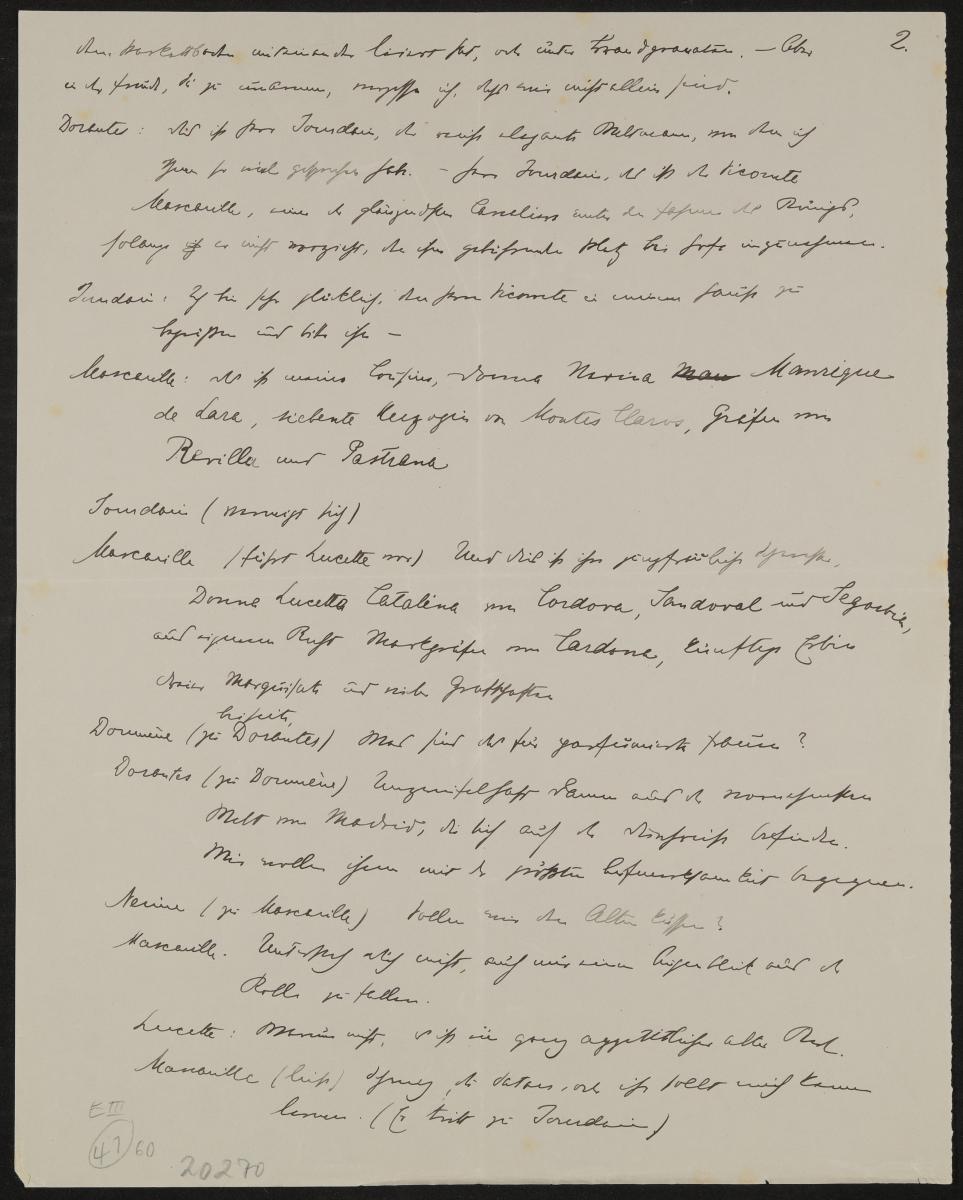 2.
dem Parkettboden miteinander        hat, oder unter Brandgranaten. — Aber
in der Freude, Sie zu umarmen, vergesse ich, dass wir nicht allein sind.
Dorantes: Das ist Herr Jourdain, der                   , von dem ich
Ihnen so viel gesprochen habe. — Herr Jourdain, das ist der Vicomte
Mascarille, einer der glänzendsten Cavaliere unter den Fahnen des Königs,
solange er es nicht vorzieht, den ihm gebührenden Platz bei Hofe einzunehmen.
Jourdain: Ich bin sehr glücklich, den Herrn Vicomte in meinem Hause zu
begrüssen und bitte ihn —
Mascarille: das ist meine Cousine, Donna Nerina Manrique
de Lara, siebente Herzogin von Montes Claros, Gräfin von
Revilla und Pastrana
Jourdain (verneigt sich)
Mascarille (führt Lucette vor) Und dies ist ihre jungfräuliche         ,
Donna Lucetta Catalina von Cordova, Sandoval und Segorbia,
aus eigenem Recht Markgräfin von Cardona, künftige Erbin
dreier Marquisate und sieben Grafschaften
beiseite,
Dorimène (zu Dorantes) Was sind das für parfümierte Frauen?
Dorantes (zu Dorimène) Unzweifelhaft Damen aus der vornehmsten
Welt von Madrid, die sich auf der Durchreise befinden.
Wir wollen ihnen mit der größten Aufmerksamkeit begegnen.
Nerine (zu Mascarille) Sollen wir den Alten küssen?
Mascarille. Untersteh dich nicht, auch nur einen Augenblick aus der
Rolle zu fallen.
Lucette: Warum nicht, es ist ein ganz appetitlicher alter Kerl.
Mascarille (leise) Schweig,               , oder ihr sollt mich kennen
lernen. (Er tritt zu Jourdain)
E III
47 60
20270